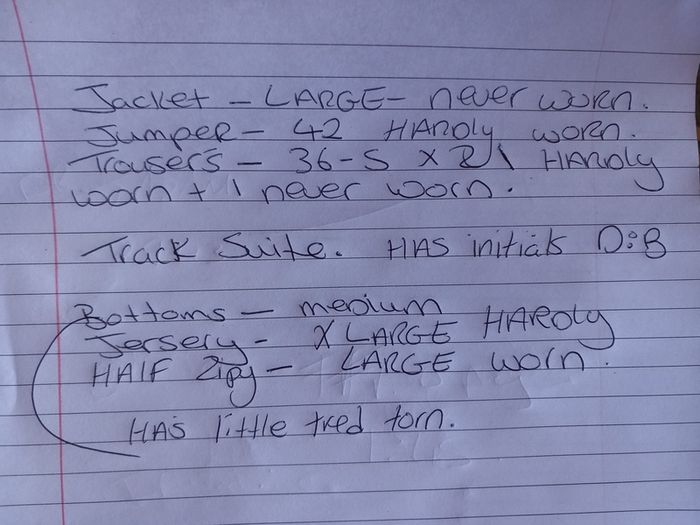 Jacket - LARGE - never worn.
Jumper - 42 HARDly worn.
Trousers - 36-S x 2 \ HARDly
worn + 1 never worn.
Track Suite. HAS initials D:B
Bottoms - medium
Jersery - X LARGE HARDly
HAlF Zipy - LARGE worn.
HAS little tred torn.